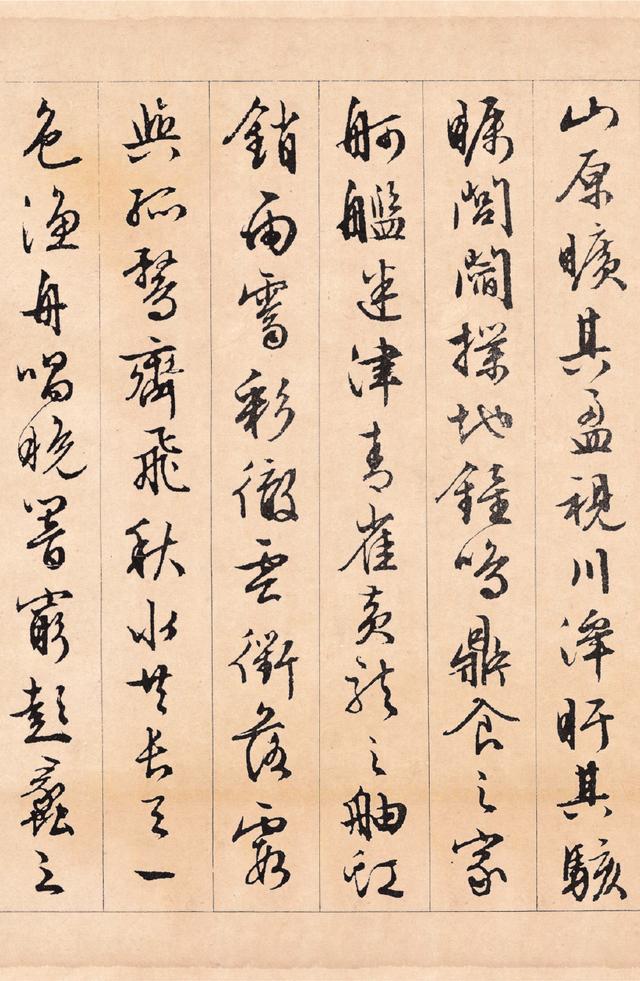 山原曠其盈視川澤盱其駭
矚閭閻撲地鐘鳴鼎食之家
舸艦迷津青雀黃龍之舳虹
銷雨霽彩徹雲衢落霞
與孤鶩齊飛秋水共長天一
色漁舟唱晚響窮彭蠡之